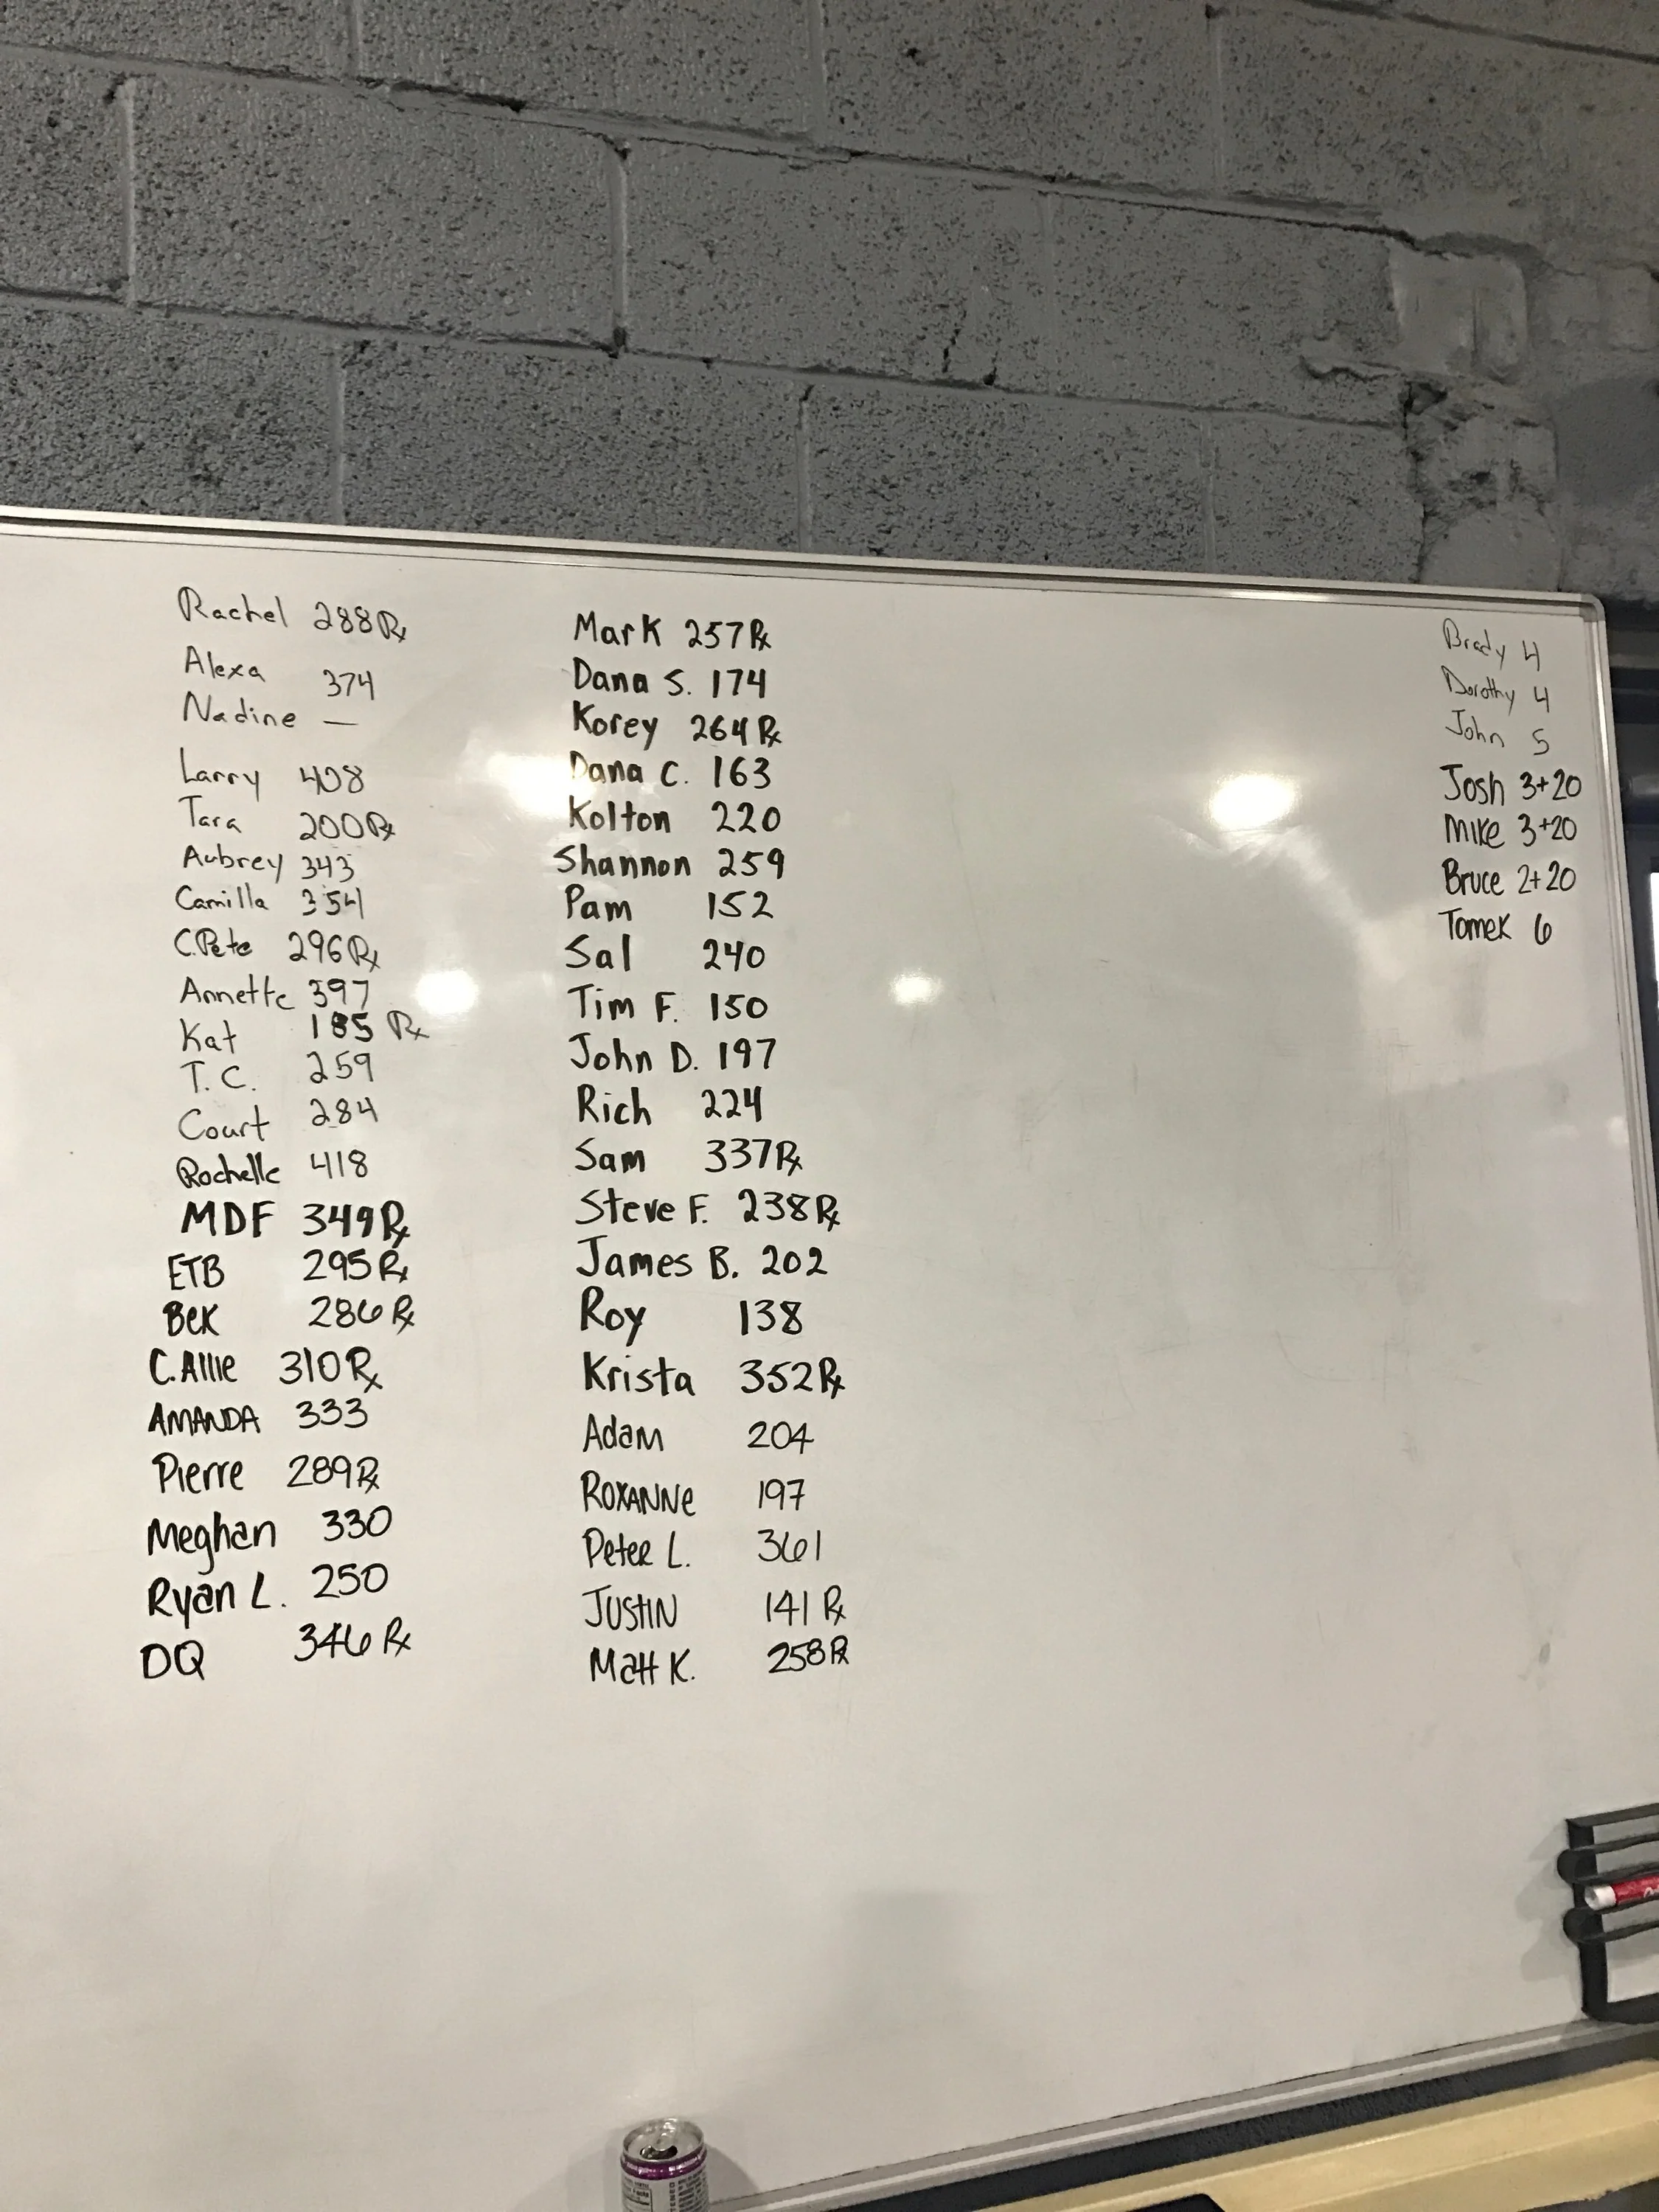 Rachel 288 Rx
Alexa 374
Nadine —
Larry 408
Tara 200 Rx
Aubrey 343
Camilla 354
C.Pete 296 Rx
Annette 397
Kat 185 Rx
T.C. 259
Court 284
Rochelle 418
MDF 349 Rx
ETB 295 Rx
Bek 286 Rx
C.Allie 310 Rx
AMANDA 333
Pierre 289 Rx
Meghan 330
Ryan L. 250
DQ 346 Rx
Mark 257 Rx
Dana S. 174
Korey 264 Rx
Dana C. 163
Kolton 220
Shannon 259
Pam 152
Sal 240
Tim F. 150
John D. 197
Rich 224
Sam 337 Rx
Steve F. 238 Rx
James B. 202
Roy 138
Krista 352 Rx
Adam 204
ROXANNe 197
Peter L. 361
JUSTIN 141 Rx
Matt K. 258 Rx
Brady 4
Dorothy 4
John 5
Josh 3+20
Mike 3+20
Bruce 2+20
Tomek 6